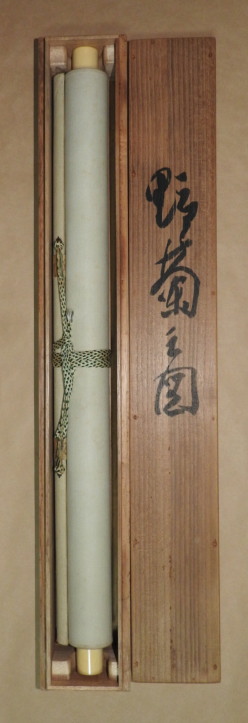 野菊之図